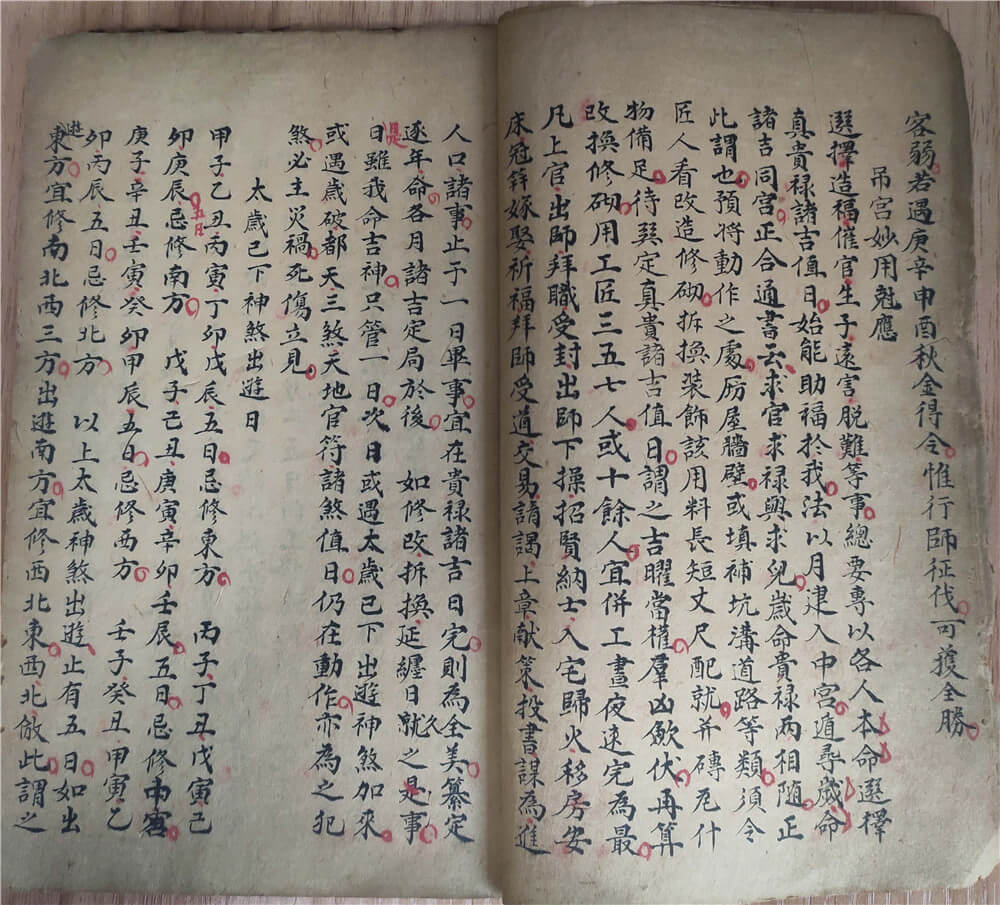 容弱若遇庚辛申酉秋金得令惟行師征伐可獲全勝
吊宮妙用尅應
選擇造福催官生子遠害脱難等事總要專以各人本命選擇
真貴禄諸吉值日始能助福於我法以月建入中宮遁尋歲命
諸吉同宮正合通書云求官求禄與求兒歲命貴禄兩相隨正
此謂也預將動作之處房屋牆壁或填補坑溝道路等類須令
匠人看改造修砌拆換裝飾該用料長短丈尺配就并磚瓦什
物備足待巽定真貴諸吉值日謂之吉曜當權羣凶歛伏再算
改換修砌用工匠三五七人或十餘人宜併工晝夜速完為最
凡上官出師拜職受封出師下操招賢納士入宅歸火移房安
床冠笄嫁娶祈福拜師受道交易請謁上章献策投書謀為進
人口諸事止于一日畢事宜在貴禄諸吉日完則為全美纂定
逐年命各月諸吉定局於後 如修改拆換延纏日久就之是事
是日日雖我命吉神只管一日次日或遇太歲已下出遊神煞加來
或遇歲破都天三煞天地官符諸煞值日仍在動作亦為之犯
煞必主災禍死傷立見
太歲已下神煞出遊日
甲子乙丑丙寅丁卯戊辰五日忌修東方 丙子丁丑戊寅己
卯庚辰五日忌修南方 戊子己丑庚寅辛卯壬辰五日忌修中宮
庚子辛丑壬寅癸卯甲辰五日忌修西方 壬子癸丑甲寅乙
卯丙辰五日忌修北方 以上太歲神煞出遊止有五日如出
遊東方宜修南北西三方出遊南方宜修西北東西北倣此謂之